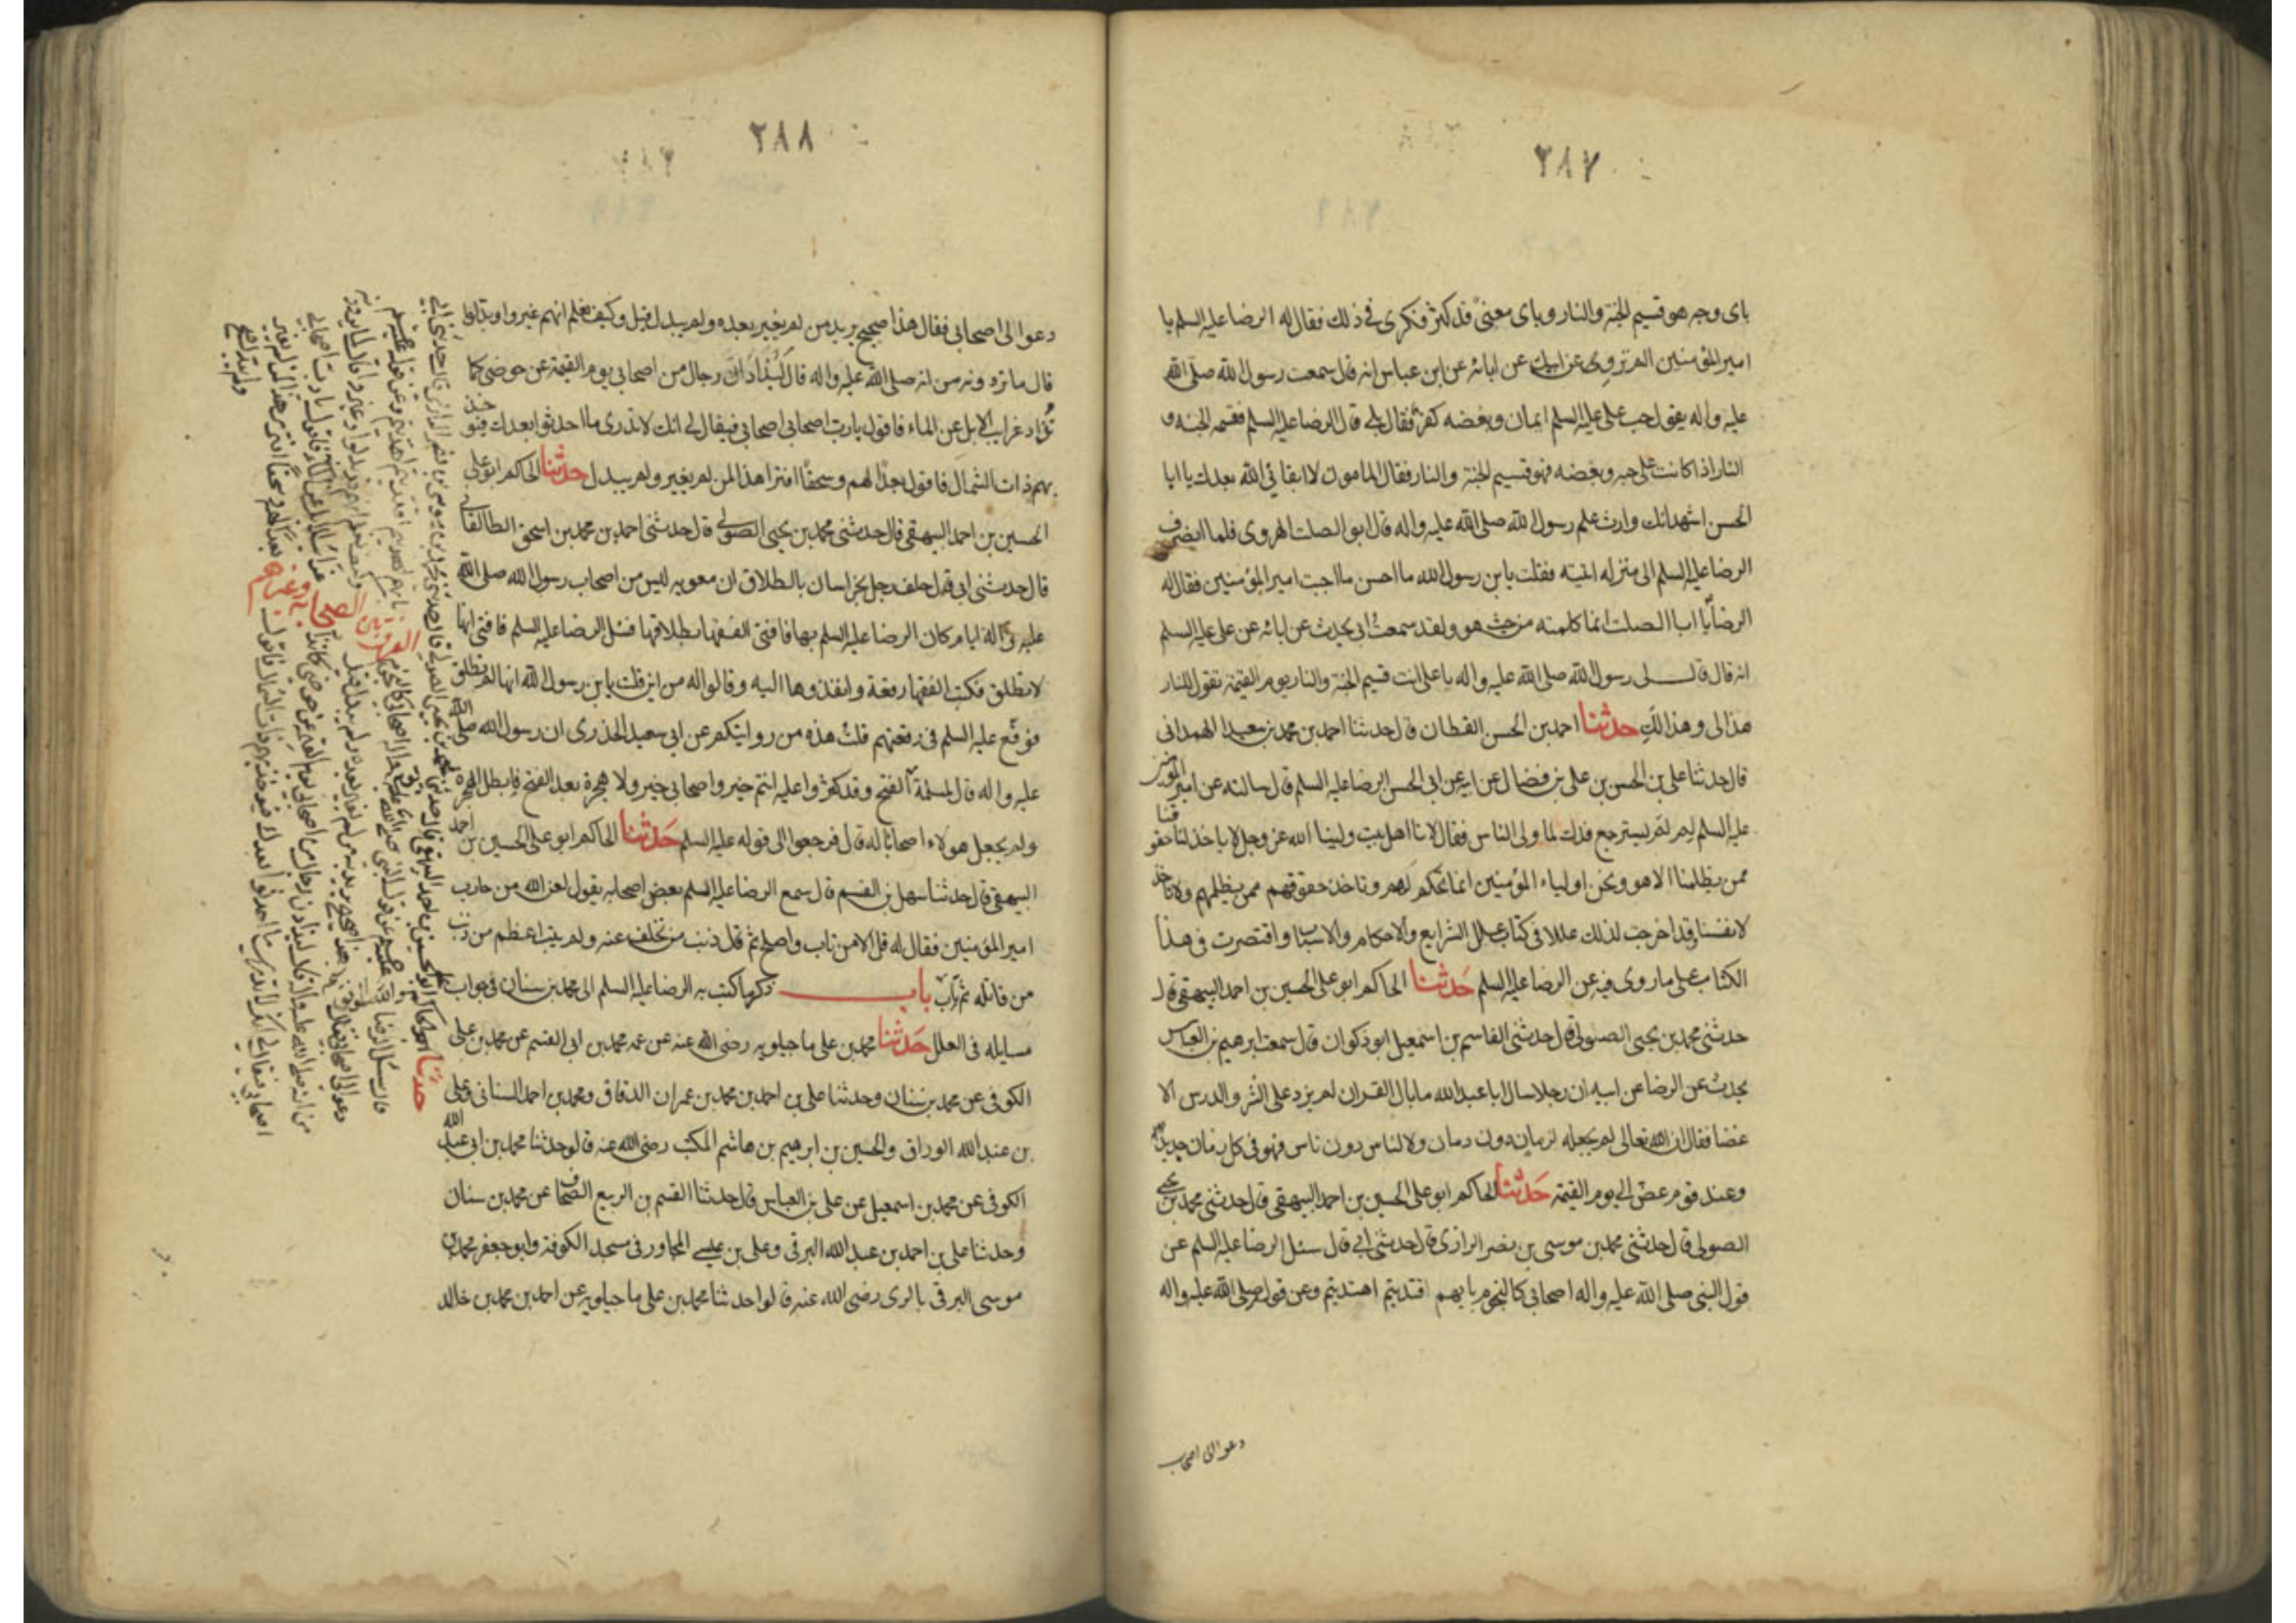 ٢٨٧
بای وجه هو قسیم الجنة والنار وبای معنی قد کثر فکری فی ذلك فقال له الرضا علیه السلم یا
امیر المؤمنین الم تروی عن ابیك عن ابائه عن ابن عباس انه قال سمعت رسول الله صلی الله
علیه واله یقول حب علی علیه السلم ایمان وبغضه کفر فقال بلی قال الرضا علیه السلم فقسمه الجنة و
النار اذا کانت علی حبه وبغضه فهو قسیم الجنة والنار فقال المامون لا ابقانی الله بعدك یا ابا
الحسن اشهد انك وارث علم رسول الله صلی الله علیه واله قال ابو الصلت الهروی فلما انصرف
الرضا علیه السلم الی منزله اتیته فقلت یا بن رسول الله ما احسن ما اجبت امیر المؤمنین فقال له
الرضا یا ابا الصلت انما کلمته من حیث هو ولقد سمعت ابی یحدث عن ابائه عن علی علیه السلم
انه قال قال لی رسول الله صلی الله علیه واله یا علی انت قسیم الجنة والنار یوم القیمة تقول للنار
هذا لی وهذا لك حدثنا احمد بن الحسن القطان قال حدثنا احمد بن محمد بن سعید الهمدانی
قال حدثنا علی بن الحسن بن علی بن فضال عن ابیه عن ابی الحسن الرضا علیه السلم قال سالته عن امیر المؤمنین
علیه السلم لم لم یسترجع فدك لما ولی الناس فقال لانا اهل بیت ولینا الله عز وجل لا یاخذ لنا حقوقنا
ممن یظلمنا الا هو ونحن اولیاء المؤمنین انما نحکم لهم وناخذ حقوقهم ممن یظلمهم ولا ناخذ
لانفسنا وقد اخرجت لذلك عللا فی کتاب علل الشرایع والاحکام والاسباب واقتصرت فی هذا
الکتاب علی ما روی فیه عن الرضا علیه السلم حدثنا الحاکم ابو علی الحسین بن احمد البیهقی قال
حدثنی محمد بن یحیی الصولی قال حدثنی القاسم بن اسمعیل ابو ذکوان قال سمعت ابرهیم بن العباس
یحدث عن الرضا عن ابیه ان رجلا سال ابا عبد الله ما بال القران لم یزد علی النشر والدرس الا
غضا فقال ان الله تعالی لم یجعله لزمان دون زمان ولا لناس دون ناس فهو فی کل زمان جدید
وعند قوم غض الی یوم القیمة حدثنا الحاکم ابو علی الحسین بن احمد البیهقی قال حدثنی محمد بن یحیی
الصولی قال حدثنی محمد بن موسی بن نصر الرازی قال حدثنی ابی قال سئل الرضا علیه السلم عن
قول النبی صلی الله علیه واله اصحابی کالنجوم بایهم اقتدیتم اهتدیتم وعن قوله صلی الله علیه واله
دعوا الی اصحابی
٢٨٨
دعوا الی اصحابی فقال هذا صحیح یرید من لم یغیر بعده ولم یبدل قیل وکیف نعلم انهم غیروا وبدلوا
قال ما تروونه من انه صلی الله علیه واله قال لیذادن رجال من اصحابی یوم القیمة عن حوضی کما
تذاد غرایب الابل عن الماء فاقول یا رب اصحابی اصحابی فیقال لی انك لا تدری ما احدثوا بعدك فیؤخذ
بهم ذات الشمال فاقول بعدا لهم وسحقا افترا هذا لمن لم یغیر ولم یبدل حدثنا الحاکم ابو علی
الحسین بن احمد البیهقی قال حدثنی محمد بن یحیی الصولی قال حدثنی احمد بن محمد بن اسحق الطالقانی
قال حدثنی ابی قال حلف رجل بخراسان بالطلاق ان معویه لیس من اصحاب رسول الله صلی الله
علیه واله ایام کان الرضا علیه السلم بها فافتی الفقها بطلاقها فسئل الرضا علیه السلم فافتی انها
لا تطلق فکتب الفقها رقعة وانفذوها الیه وقالوا له من این قلت یا بن رسول الله انها لم تطلق
فوقع علیه السلم فی رقعتهم قلت هذه من روایتکم عن ابی سعید الخدری ان رسول الله صلی الله
علیه واله قال لمسلمة الفتح وقد کثروا علیه انتم خیر واصحابی خیر ولا هجرة بعد الفتح فابطل الهجرة
ولم یجعل هولاء اصحابا له قال فرجعوا الی قوله علیه السلم حدثنا الحاکم ابو علی الحسین بن احمد
البیهقی قال حدثنا سهل بن القسم قال سمع الرضا علیه السلم بعض اصحابه یقول لعن الله من حارب
امیر المؤمنین فقال له قل الا من تاب واصلح ثم قال ذنب من تخلف عنه ولم یتب اعظم من ذنب
من قاتله ثم تاب باب ذکر ما کتب به الرضا علیه السلم الی محمد بن سنان فی جواب
مسایله فی العلل حدثنا محمد بن علی ماجیلویه رضی الله عنه عن عمه محمد بن ابی القسم عن محمد بن علی
الکوفی عن محمد بن سنان وحدثنا علی بن احمد بن محمد بن عمران الدقاق ومحمد بن احمد السنانی وعلی
بن عبد الله الوراق والحسین بن ابرهیم بن هاشم المکتب رضی الله عنه قالوا حدثنا محمد بن ابی عبد الله
الکوفی عن محمد بن اسمعیل عن علی بن العباس قال حدثنا القسم بن الربیع الصحاف عن محمد بن سنان
وحدثنا علی بن احمد بن عبد الله البرقی وعلی بن عیسی المجاور فی مسجد الکوفة وابو جعفر محمد بن
موسی البرقی بالری رضی الله عنه قالوا حدثنا محمد بن علی ماجیلویه عن احمد بن محمد بن خالد